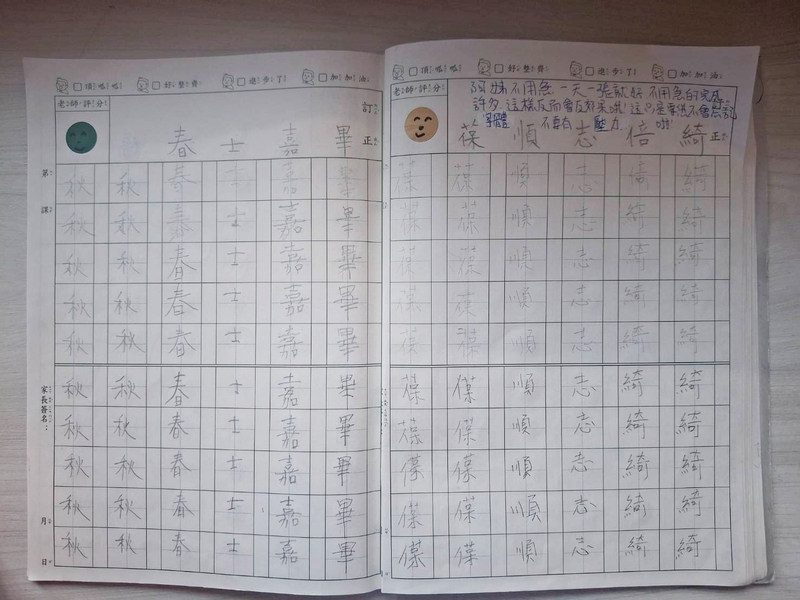 頂呱呱 好整齊 進步了 加加油
老師評分
訂正
春 士 嘉 畢
第
課
秋 秋 春 士 嘉 畢
秋 秋 春 士 嘉 畢
秋 秋 春 士 嘉 畢
秋 秋 春 士 嘉 畢
秋 秋 春 士 嘉 畢
秋 秋 春 士 嘉 畢
秋 秋 春 士 嘉 畢
秋 秋 春 士 嘉 畢
秋 秋 春 士 嘉 畢
秋 秋 春 士 嘉 畢
家長簽名：
月
日
頂呱呱 好整齊 進步了 加加油
老師評分
阿姊不用急 一天一張就好 不用急的完成
許多 這樣反而會反效果哦! 這只是要 不會忘記
字體 不要有 壓力 啦!
正
葆 順 志 倍 綺
葆 葆 順 志 綺
葆 葆 順 志 綺 綺
葆 葆 順 志 綺 綺
葆 葆 順 志 綺 綺
葆 葆 順 志 綺 綺
葆 葆 順 志 綺 綺
葆 葆 順 志 綺 綺
葆 葆 順 志 綺 綺
葆 葆 順 志 綺 綺
葆 葆 順 志 綺 綺